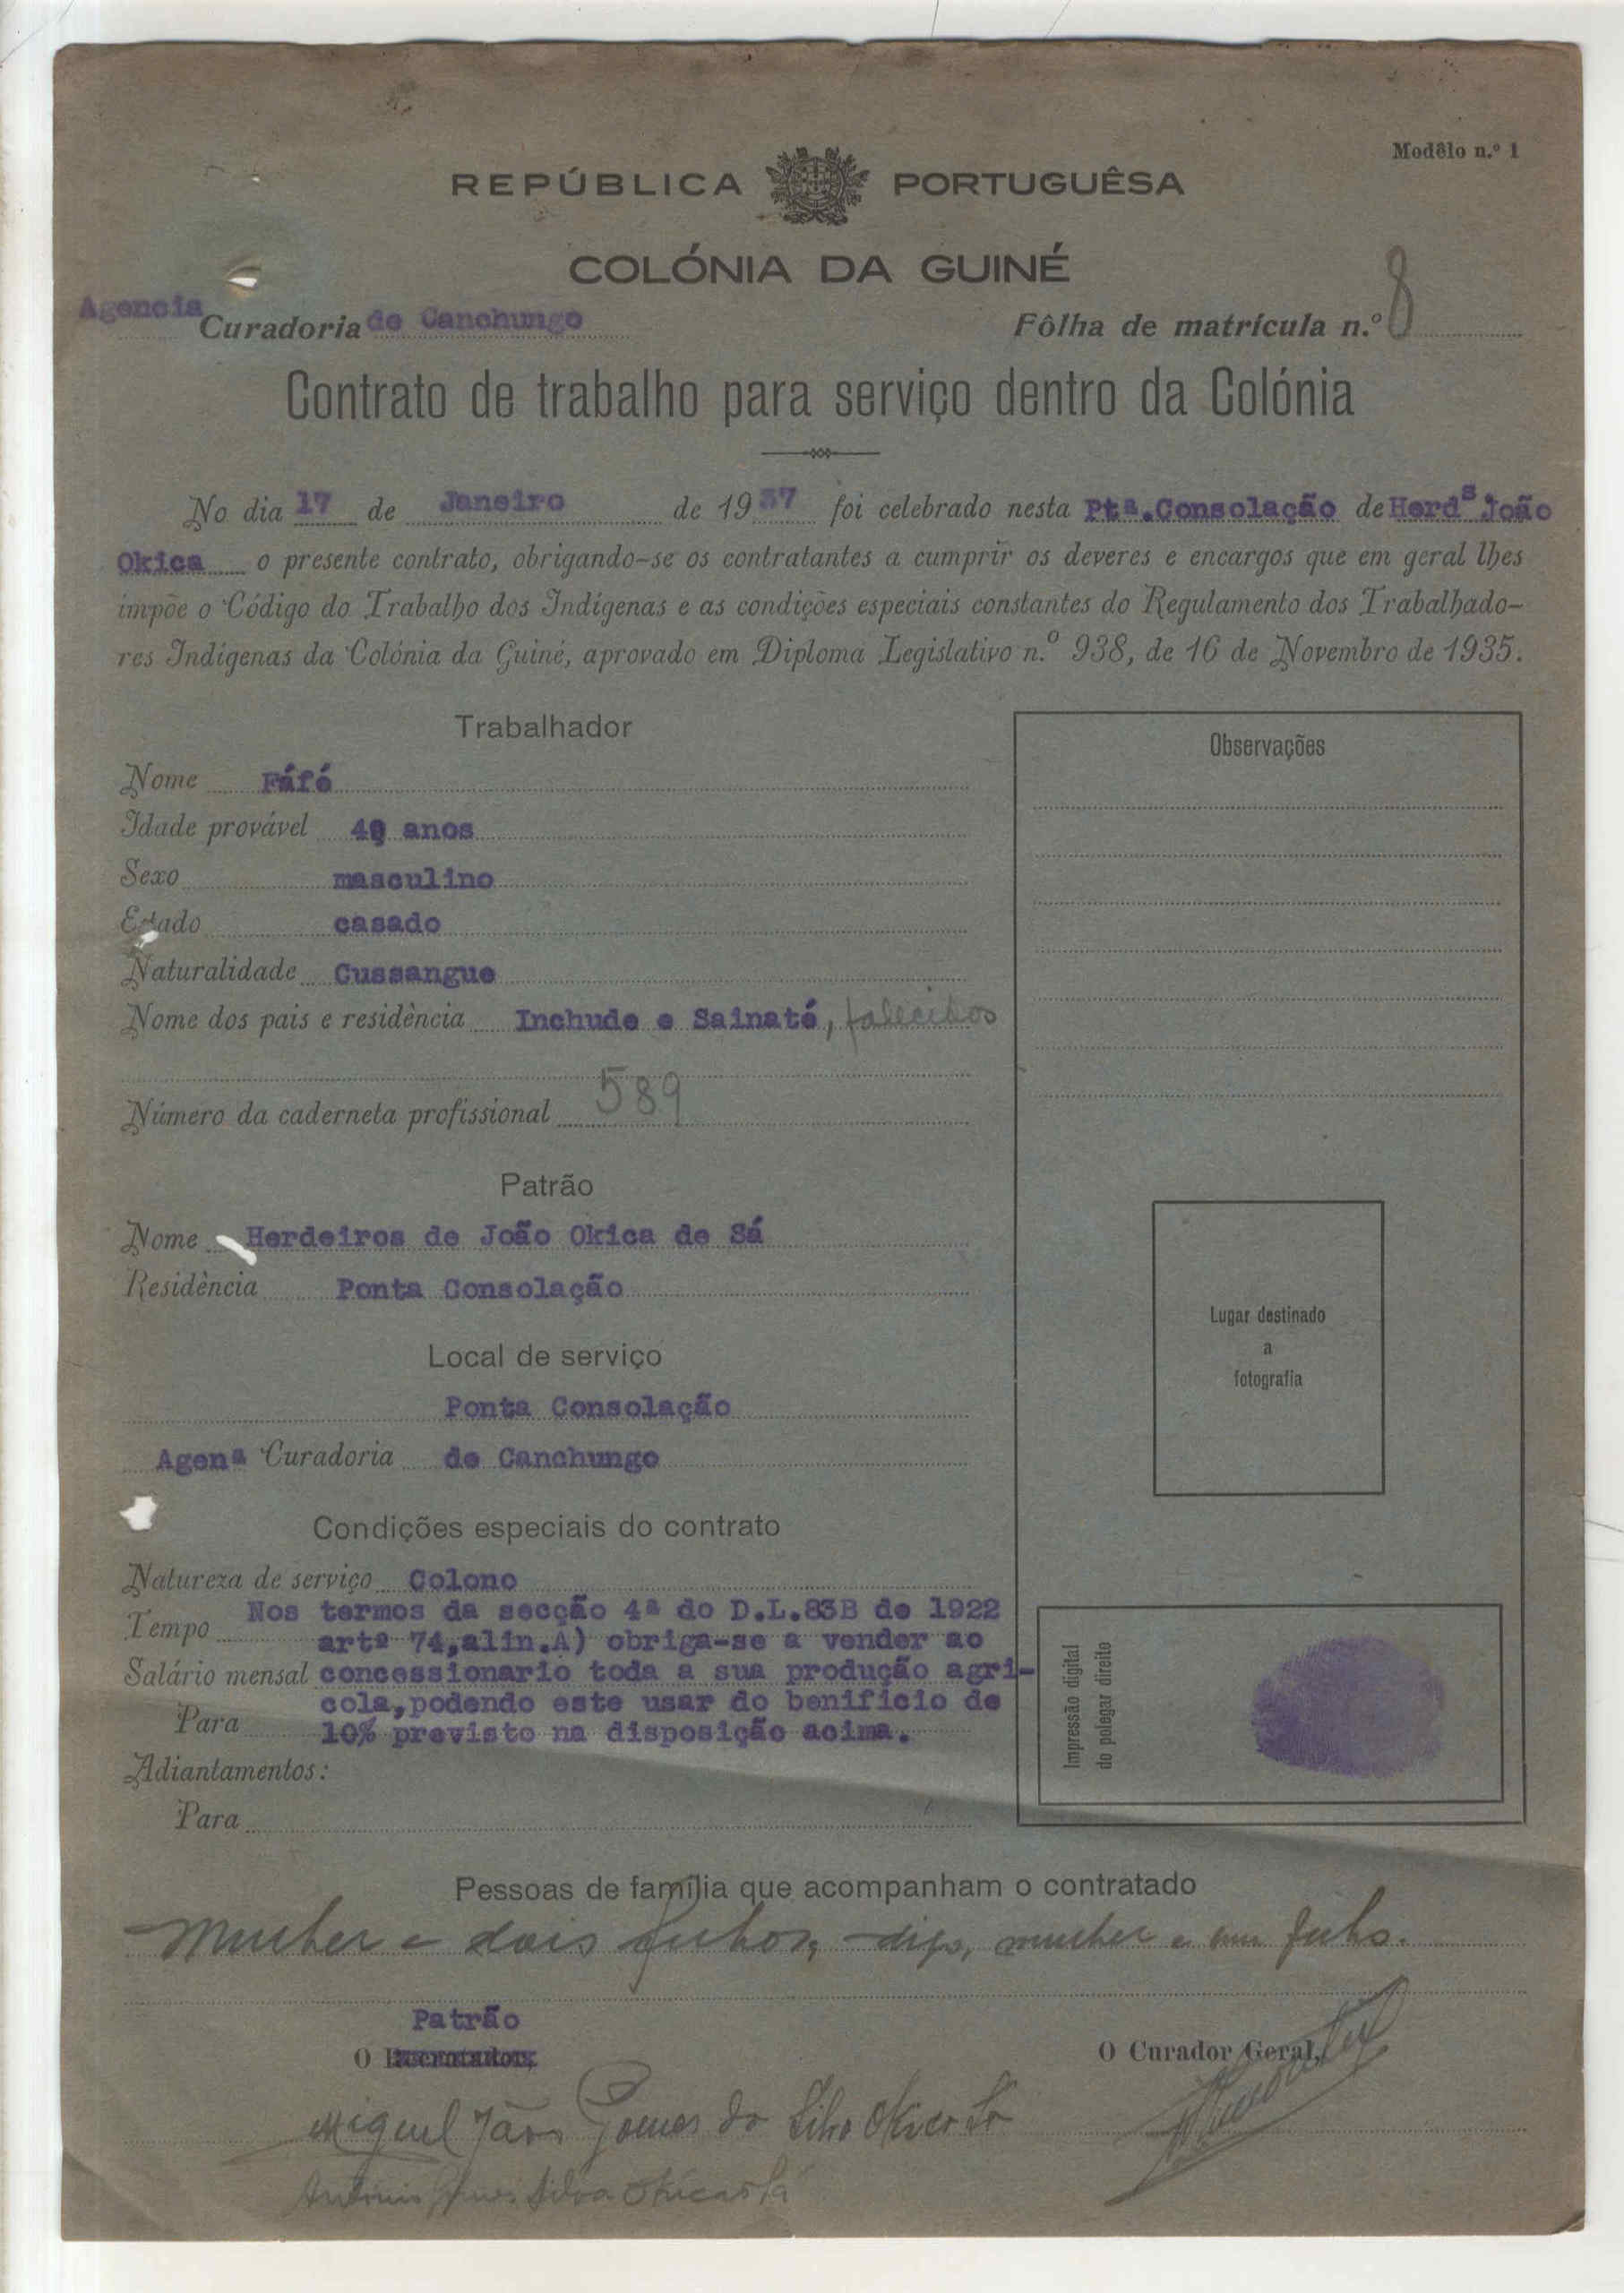 Modêlo n.º 1
REPÚBLICA PORTUGUÊSA
COLÓNIA DA GUINÉ
Agencia Curadoria de Canchungo Fôlha de matrícula n.º 8
Contrato de trabalho para serviço dentro da Colónia
No dia 17 de Janeiro de 1937 foi celebrado nesta Ptª.Consolação de Herdˢ João
Okica o presente contrato, obrigando-se os contratantes a cumprir os deveres e encargos que em geral lhes
impõe o Código do Trabalho dos Indígenas e as condições especiais constantes do Regulamento dos Trabalhado-
res Indígenas da Colónia da Guiné, aprovado em Diploma Legislativo n.º 938, de 16 de Novembro de 1935.
Trabalhador
Nome Fáfé
Idade provável anos
Sexo masculino
Estado casado
Naturalidade Cussangue
Nome dos pais e residência Inchude e Sainaté, falecidos
Número da caderneta profissional 589
Patrão
Nome Herdeiros de João Okica de Sá
Residência Ponta Consolação
Local de serviço
Ponta Consolação
Agenª Curadoria de Canchungo
Condições especiais do contrato
Natureza de serviço Colono
Nos termos da secção 4ª do D.L.83B de 1922
Tempo artº 74,alin.A) obriga-se a vender ao
Salário mensal concessionario toda a sua produção agri-
cola,podendo este usar do benificio de
Para 10% previsto na disposição acima.
Adiantamentos:
Para
Observações
Lugar destinado
a
fotografia
Impressão digital
do polegar direito
Pessoas de família que acompanham o contratado
Mulher e dois filhos, digo, mulher e um filho.
Patrão
O
O Curador Geral,
Miguel João Gomes da Silva Okica Sá
António Gomes Silva Okica Sá